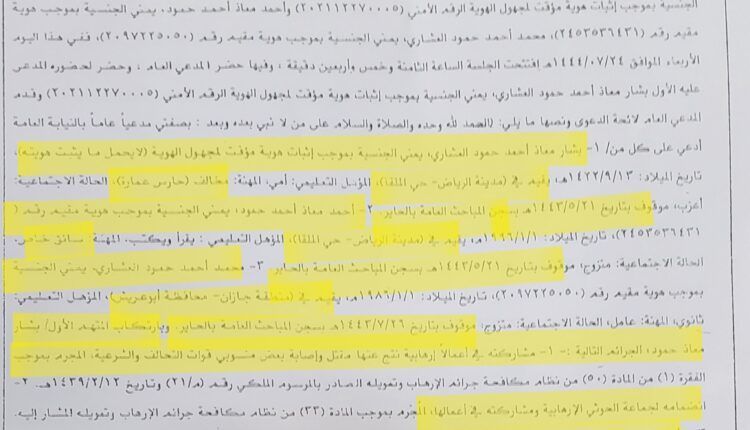 الجنسية بموجب إثبات هوية مؤقت لمجهول الهوية الرقم الأمني (٢٠٢١١٢٢٧٠٠٠٥) وأحمد معاذ أحمد حمود، يمني الجنسية بموجب هوية
مقيم رقم (٢٤٥٣٥٣٦٤٣١)، محمد أحمد حمود العشاري، يمني الجنسية بموجب هوية مقيم رقم (٢٠٩٧٢٢٥٠٥٠)، ففي هذا اليوم
الأربعاء الموافق ١٤٤٤/٠٧/٢٤هـ إفتتحت الجلسة الساعة الثامنة وخمس وأربعين دقيقة ، وفيها حضر المدعي العام ، وحضر لحضوره المدعى
عليه الأول بشار معاذ أحمد حمود العشاري، يمني الجنسية بموجب إثبات هوية مؤقت لمجهول الهوية الرقم الأمني (٢٠٢١١٢٢٧٠٠٠٥) وقدم
المدعي العام لائحة الدعوى ونصها ما يلي: (الحمد لله وحده والصلاة والسلام على من لا نبي بعده وبعد : بصفتي مدعياً عاماً بالنيابة العامة
أدعي على كل من/ ١- بشار معاذ أحمد حمود العشاري، يمني الجنسية بموجب إثبات هوية مؤقت لمجهول الهوية (لايحمل ما يثبت هويته)،
تاريخ الميلاد: ١٤٢٢/٩/١٣هـ، يقيم في (مدينة الرياض- حي الملقا)، المؤهل التعليمي: أمي، المهنة: مخالف (حارس عمارة)، الحالة الاجتماعية:
أعزب، موقوف بتاريخ ١٤٤٣/٥/٢١هـ بسجن المباحث العامة بالحاير. ٢- أحمد معاذ أحمد حمود، يمني الجنسية بموجب هوية مقيم رقم (
٢٤٥٣٥٣٦٤٣١)، تاريخ الميلاد: ١٩٩٦/١/١م، يقيم في (مدينة الرياض- حي الملقا)، المؤهل التعليمي : يقرأ ويكتب، المهنة سائق خاص،
الحالة الاجتماعية: متزوج، موقوف بتاريخ ١٤٤٣/٥/٢١هـ بسجن المباحث العامة بالحاير. ٣- محمد أحمد حمود العشاري، يمني الجنسية
بموجب هوية مقيم رقم (٢٠٩٧٢٢٥٠٥٠)، تاريخ الميلاد: ١٩٨٦/١/١م، يقيم في (منطقة جازان- محافظة أبوعريش)، المؤهل التعليمي:
ثانوي، المهنة: عامل، الحالة الاجتماعية: متزوج، موقوف بتاريخ ١٤٤٣/٧/٢٦هـ بسجن المباحث العامة بالحاير. وبارتكاب المتهم الأول/ بشار
معاذ حمود؛ الجرائم التالية :- ١- مشاركته في أعمالاً إرهابية نتج عنها مقتل وإصابة بعض منسوبي قوات التحالف والشرعية، المجرم بموجب
الفقرة (١) من المادة (٥٠) من نظام مكافحة جرائم الإرهاب وتمويله الصادر بالمرسوم الملكي رقم (م/٢١) وتاريخ ١٤٣٩/٢/١٢هـ. ٢-
انضمامه لجماعة الحوثي الإرهابية ومشاركته في أعمالها، المجرم بموجب المادة (٣٣) من نظام مكافحة جرائم الإرهاب وتمويله المشار إليه.